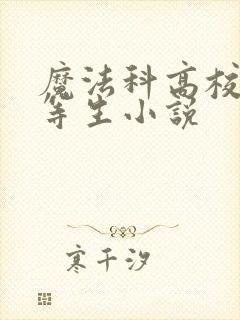 魔法科高校
等生小説
寒千汐